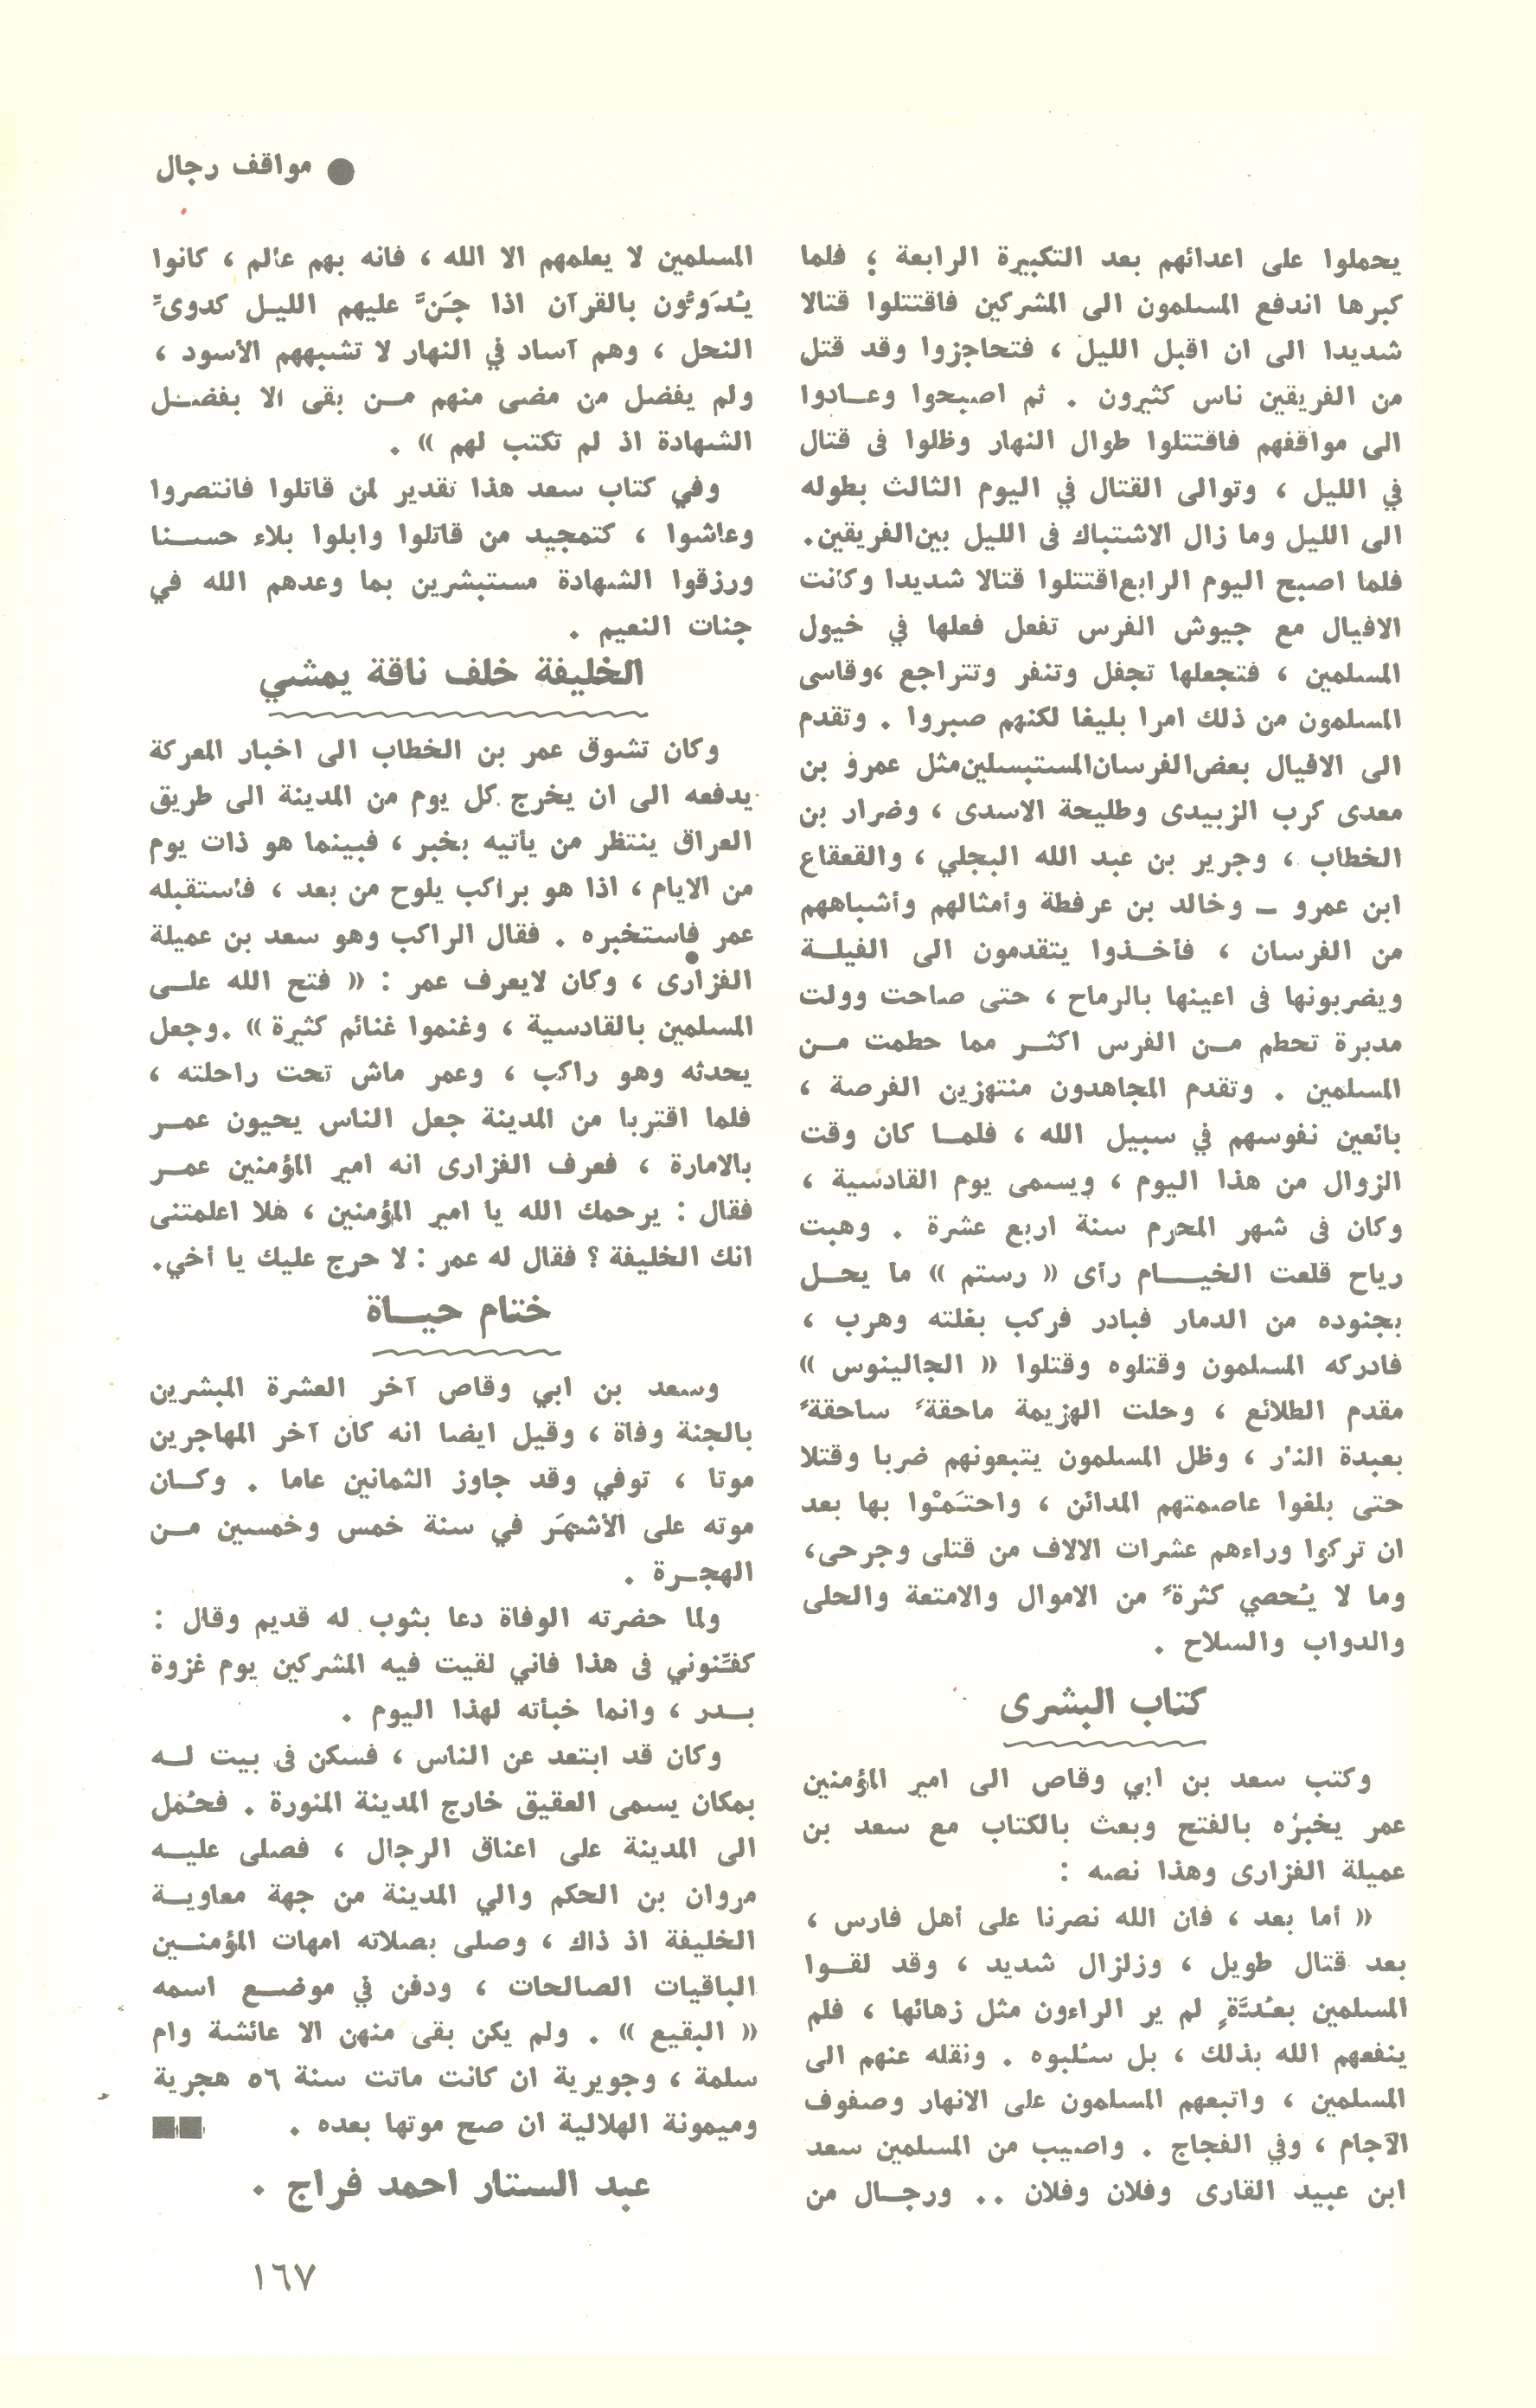 ● مواقف رجال
يحملوا على اعدائهم بعد التكبيرة الرابعة ؛ فلما
كبرها اندفع المسلمون الى المشركين فاقتتلوا قتالا
شديدا الى ان اقبل الليل ، فتحاجزوا وقد قتل
من الفريقين ناس كثيرون . ثم اصبحوا وعادوا
الى مواقفهم فاقتتلوا طوال النهار وظلوا فى قتال
في الليل ، وتوالى القتال في اليوم الثالث بطوله
الى الليل وما زال الاشتباك فى الليل بين الفريقين.
فلما اصبح اليوم الرابع اقتتلوا قتالا شديدا وكانت
الافيال مع جيوش الفرس تفعل فعلها في خيول
المسلمين ، فتجعلها تجفل وتنفر وتتراجع ،وقاسى
المسلمون من ذلك امرا بليغا لكنهم صبروا . وتقدم
الى الافيال بعض الفرسان المستبسلين مثل عمرو بن
معدى كرب الزبيدى وطليحة الاسدى ، وضرار بن
الخطاب ، وجرير بن عبد الله البجلي ، والقعقاع
ابن عمرو ــ وخالد بن عرفطة وأمثالهم وأشباههم
من الفرسان ، فأخذوا يتقدمون الى الفيلة
ويضربونها فى اعينها بالرماح ، حتى صاحت وولت
مدبرة تحطم من الفرس اكثر مما حطمت من
المسلمين . وتقدم المجاهدون منتهزين الفرصة ،
بائعين نفوسهم في سبيل الله ، فلما كان وقت
الزوال من هذا اليوم ، ويسمى يوم القادسية ،
وكان فى شهر المحرم سنة اربع عشرة . وهبت
رياح قلعت الخيام رأى « رستم » ما يحل
بجنوده من الدمار فبادر فركب بغلته وهرب ،
فادركه المسلمون وقتلوه وقتلوا « الجالينوس »
مقدم الطلائع ، وحلت الهزيمة ماحقةً ساحقةً
بعبدة النار ، وظل المسلمون يتبعونهم ضربا وقتلا
حتى بلغوا عاصمتهم المدائن ، واحتَمْوا بها بعد
ان تركوا وراءهم عشرات الالاف من قتلى وجرحى،
وما لا يُحصي كثرةً من الاموال والامتعة والحلى
والدواب والسلاح .
كتاب البشرى
وكتب سعد بن ابي وقاص الى امير المؤمنين
عمر يخبره بالفتح وبعث بالكتاب مع سعد بن
عميلة الفزارى وهذا نصه :
« أما بعد ، فان الله نصرنا على أهل فارس ،
بعد قتال طويل ، وزلزال شديد ، وقد لقوا
المسلمين بعُدَّةٍ لم ير الراءون مثل زهائها ، فلم
ينفعهم الله بذلك ، بل سُلبوه . ونقله عنهم الى
المسلمين ، واتبعهم المسلمون على الانهار وصفوف
الآجام ، وفي الفجاج . واصيب من المسلمين سعد
ابن عبيد القارى وفلان وفلان .. ورجال من
المسلمين لا يعلمهم الا الله ، فانه بهم عالم ، كانوا
يُدَوُّون بالقرآن اذا جَنَّ عليهم الليل كدوىِّ
النحل ، وهم آساد في النهار لا تشبههم الأسود ،
ولم يفضل من مضى منهم من بقى الا بفضل
الشهادة اذ لم تكتب لهم » .
وفي كتاب سعد هذا تقدير لمن قاتلوا فانتصروا
وعاشوا ، كتمجيد من قاتلوا وابلوا بلاء حسنا
ورزقوا الشهادة مستبشرين بما وعدهم الله في
جنات النعيم .
الخليفة خلف ناقة يمشي
وكان تشوق عمر بن الخطاب الى اخبار المعركة
يدفعه الى ان يخرج كل يوم من المدينة الى طريق
العراق ينتظر من يأتيه بخبر ، فبينما هو ذات يوم
من الايام ، اذا هو براكب يلوح من بعد ، فاستقبله
عمر فاستخبره . فقال الراكب وهو سعد بن عميلة
الفزارى ، وكان لايعرف عمر : « فتح الله على
المسلمين بالقادسية ، وغنموا غنائم كثيرة » .وجعل
يحدثه وهو راكب ، وعمر ماش تحت راحلته ،
فلما اقتربا من المدينة جعل الناس يحيون عمر
بالامارة ، فعرف الفزارى انه امير المؤمنين عمر
فقال : يرحمك الله يا امير المؤمنين ، هلا اعلمتنى
انك الخليفة ؟ فقال له عمر : لا حرج عليك يا أخي.
ختام حياة
وسعد بن ابي وقاص آخر العشرة المبشرين
بالجنة وفاة ، وقيل ايضا انه كان آخر المهاجرين
موتا ، توفي وقد جاوز الثمانين عاما . وكان
موته على الأشهَر في سنة خمس وخمسين من
الهجرة .
ولما حضرته الوفاة دعا بثوب له قديم وقال :
كفّنوني فى هذا فاني لقيت فيه المشركين يوم غزوة
بدر ، وانما خبأته لهذا اليوم .
وكان قد ابتعد عن الناس ، فسكن فى بيت له
بمكان يسمى العقيق خارج المدينة المنورة . فحُمَل
الى المدينة على اعناق الرجال ، فصلى عليه
مروان بن الحكم والي المدينة من جهة معاوية
الخليفة اذ ذاك ، وصلى بصلاته امهات المؤمنين
الباقيات الصالحات ، ودفن في موضع اسمه
« البقيع » . ولم يكن بقى منهن الا عائشة وام
سلمة ، وجويرية ان كانت ماتت سنة ٥٦ هجرية
وميمونة الهلالية ان صح موتها بعده . ■■
عبد الستار احمد فراج .
١٦٧